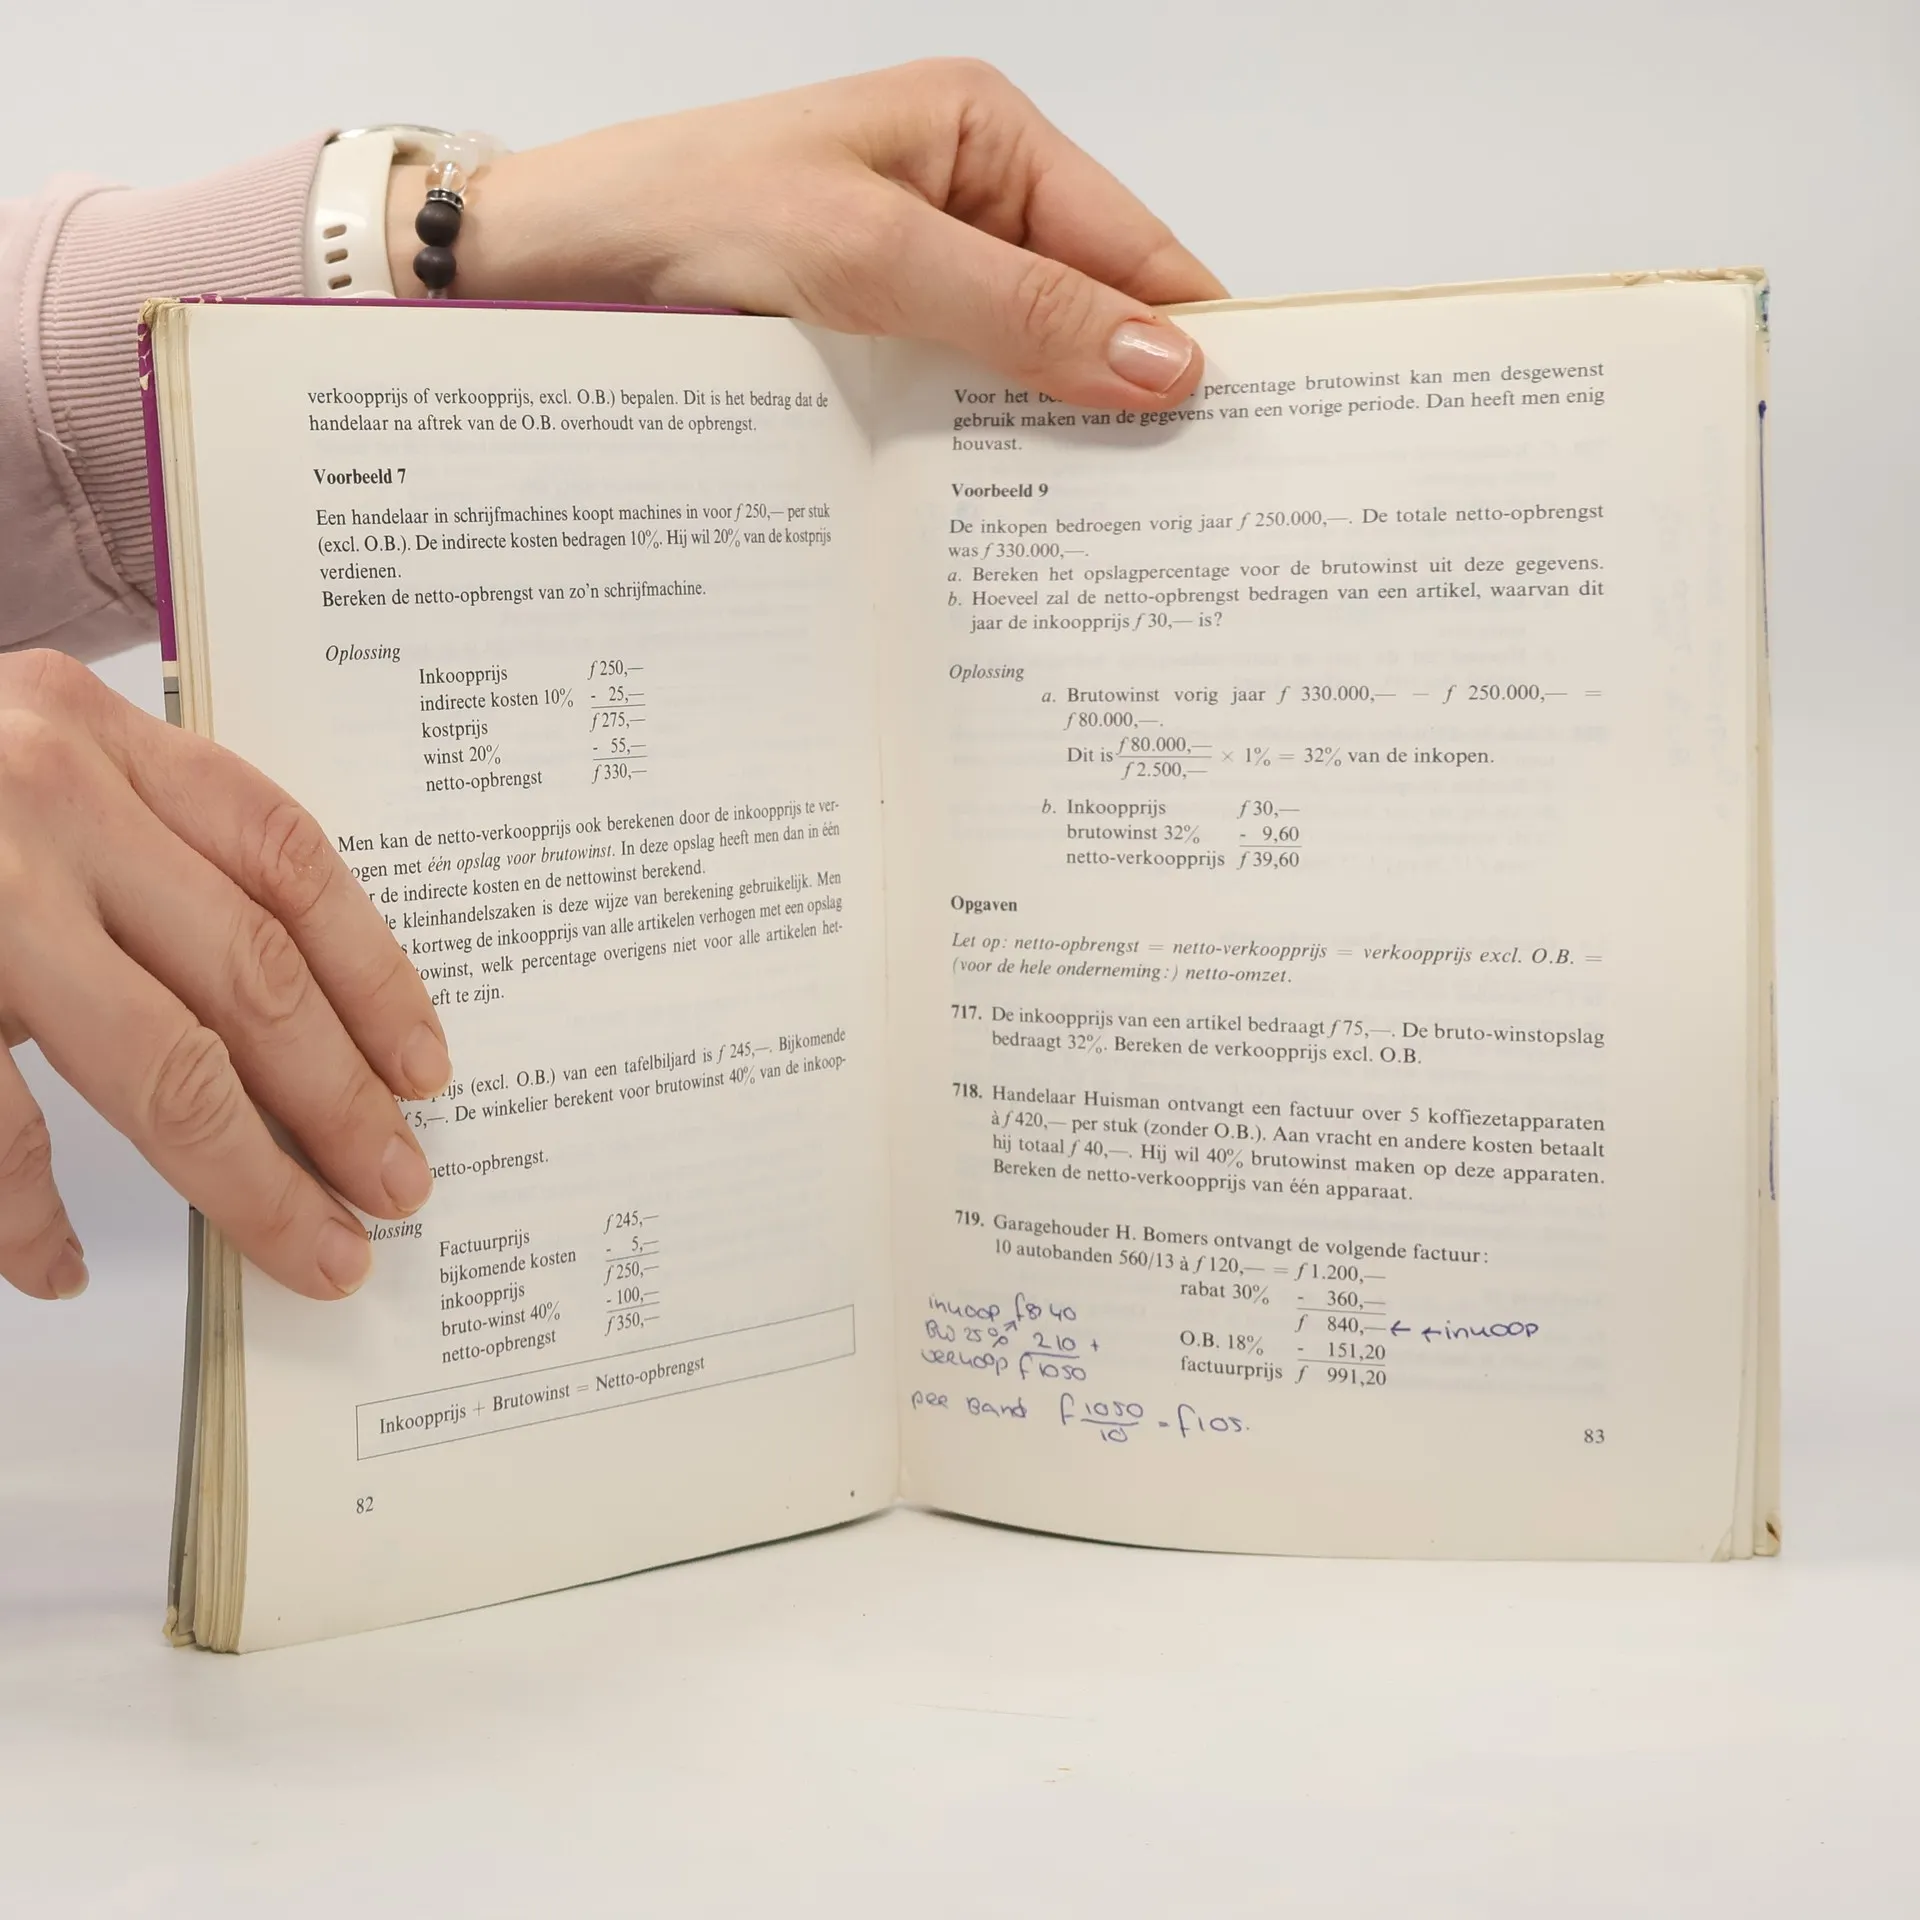 verkoopprijs of verkoopprijs, excl. O.B.) bepalen. Dit is het bedrag dat de
handelaar na aftrek van de O.B. overhoudt van de opbrengst.
Voorbeeld 7
Een handelaar in schrijfmachines koopt machines in voor ƒ 250,— per stuk
(excl. O.B.). De indirecte kosten bedragen 10%. Hij wil 20% van de kostprijs
verdienen.
Bereken de netto-opbrengst van zo'n schrijfmachine.
Oplossing
Inkoopprijs ƒ 250,—
indirecte kosten 10% - 25,—
kostprijs ƒ 275,—
winst 20% - 55,—
netto-opbrengst ƒ 330,—
Men kan de netto-verkoopprijs ook berekenen door de inkoopprijs te ver-
ogen met één opslag voor brutowinst. In deze opslag heeft men dan in één
r de indirecte kosten en de nettowinst berekend.
kleinhandelszaken is deze wijze van berekening gebruikelijk. Men
s kortweg de inkoopprijs van alle artikelen verhogen met een opslag
towinst, welk percentage overigens niet voor alle artikelen het-
eft te zijn.
ijs (excl. O.B.) van een tafelbiljard is ƒ 245,—. Bijkomende
ƒ 5,—. De winkelier berekent voor brutowinst 40% van de inkoop-
netto-opbrengst.
plossing
Factuurprijs ƒ 245,—
bijkomende kosten - 5,—
inkoopprijs ƒ 250,—
bruto-winst 40% - 100,—
netto-opbrengst ƒ 350,—
Inkoopprijs + Brutowinst = Netto-opbrengst
82
Voor het percentage brutowinst kan men desgewenst
gebruik maken van de gegevens van een vorige periode. Dan heeft men enig
houvast.
Voorbeeld 9
De inkopen bedroegen vorig jaar ƒ 250.000,—. De totale netto-opbrengst
was ƒ 330.000,—.
a. Bereken het opslagpercentage voor de brutowinst uit deze gegevens.
b. Hoeveel zal de netto-opbrengst bedragen van een artikel, waarvan dit
jaar de inkoopprijs ƒ 30,— is?
Oplossing
a. Brutowinst vorig jaar ƒ 330.000,— — ƒ 250.000,— =
ƒ 80.000,—.
Dit is ƒ 80.000,— / ƒ 2.500,— × 1% = 32% van de inkopen.
b. Inkoopprijs ƒ 30,—
brutowinst 32% - 9,60
netto-verkoopprijs ƒ 39,60
Opgaven
Let op: netto-opbrengst = netto-verkoopprijs = verkoopprijs excl. O.B. =
(voor de hele onderneming:) netto-omzet.
717. De inkoopprijs van een artikel bedraagt ƒ 75,—. De bruto-winstopslag
bedraagt 32%. Bereken de verkoopprijs excl. O.B.
718. Handelaar Huisman ontvangt een factuur over 5 koffiezetapparaten
à ƒ 420,— per stuk (zonder O.B.). Aan vracht en andere kosten betaalt
hij totaal ƒ 40,—. Hij wil 40% brutowinst maken op deze apparaten.
Bereken de netto-verkoopprijs van één apparaat.
719. Garagehouder H. Bomers ontvangt de volgende factuur:
10 autobanden 560/13 à ƒ 120,— = ƒ 1.200,—
rabat 30% - 360,—
ƒ 840,— ← ← inkoop
O.B. 18% - 151,20
factuurprijs ƒ 991,20
inkoop ƒ 840
BW 25% 210 +
verkoop ƒ 1050
per Band ƒ 1050 / 10 = ƒ 105.
83